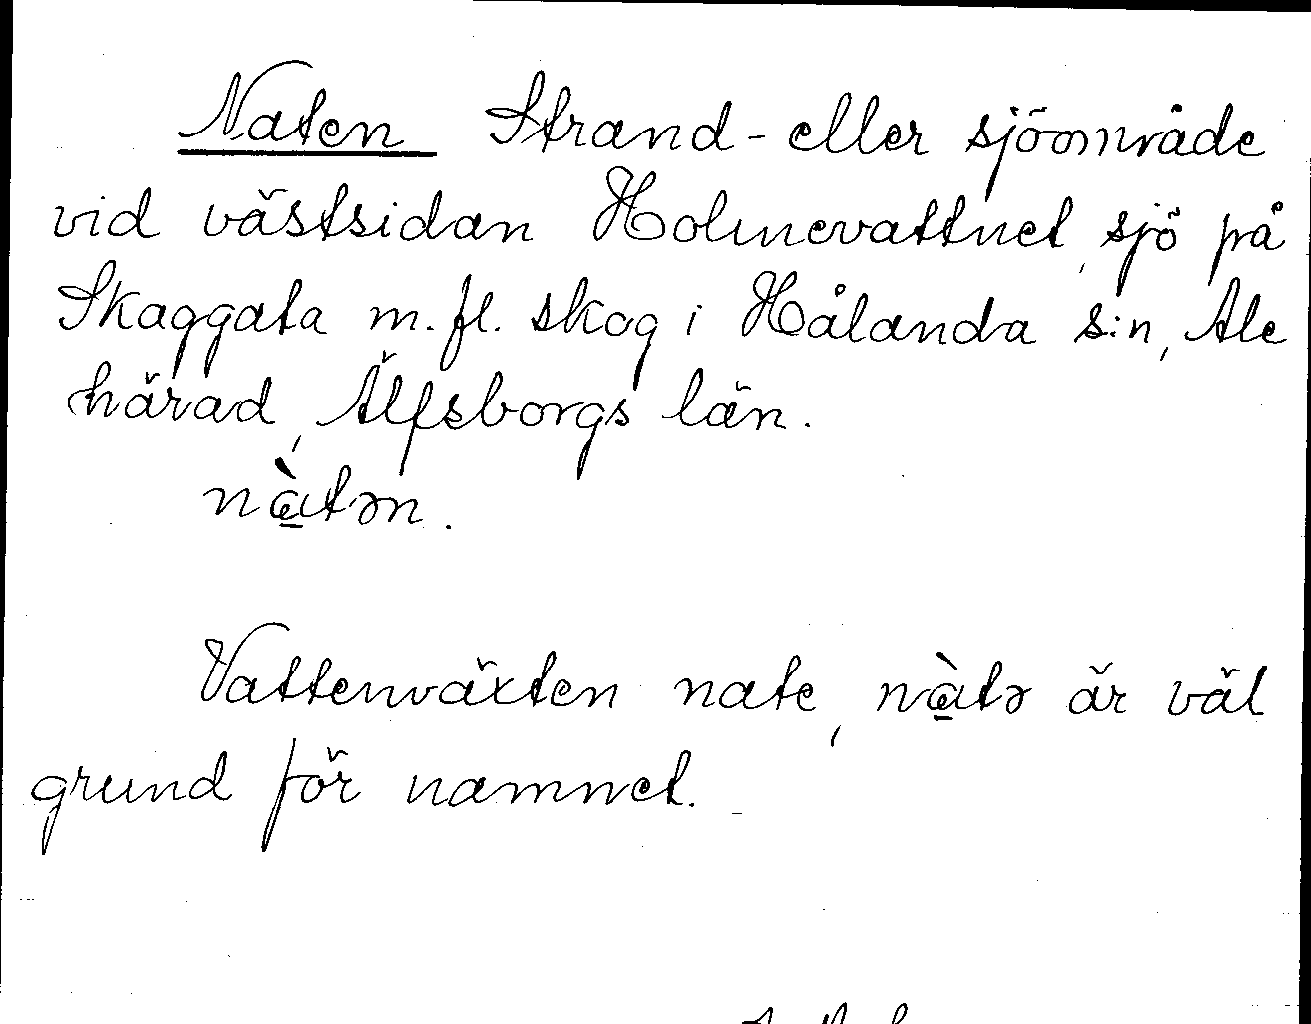 Naten Strand- eller sjöområde
vid västsidan Holmevattnet, sjö på
Skaggata m. fl. skog i Hålanda s:n, Ale
härad, Älfsborgs län.
nàtən.
Vattenväxten nate, nàtə är väl
grund för namnet.